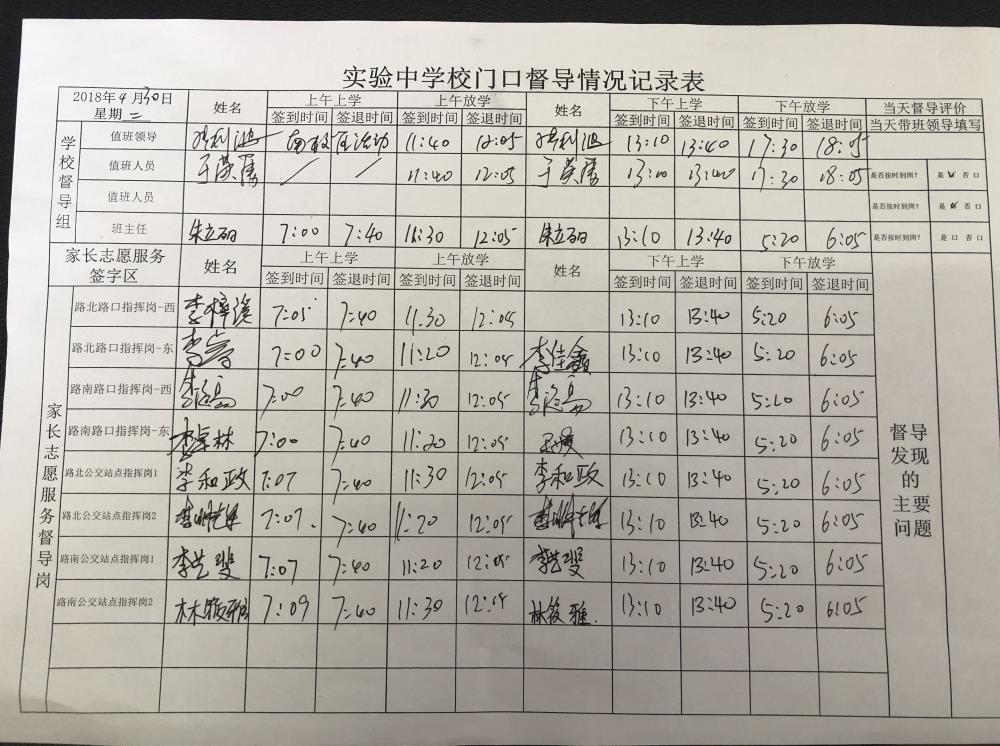 实验中学校门口督导情况记录表
2018年4月30日
星期二
姓名 上午上学 上午放学 姓名 下午上学 下午放学 当天督导评价
签到时间 签退时间 签到时间 签退时间 签到时间 签退时间 签到时间 签退时间 当天带班领导填写
学校督导组
值班领导 11:40 12:05 13:10 13:40 17:30 18:05
值班人员 11:40 12:05 13:10 13:40 17:30 18:05 是否按时到岗? 是 否口
值班人员 是否按时到岗? 是 否口
班主任 7:00 7:40 11:30 12:05 13:10 13:40 5:20 6:05 是否按时到岗? 是口 否口
家长志愿服务
签字区
姓名 上午上学 上午放学 姓名 下午上学 下午放学
签到时间 签退时间 签到时间 签退时间 签到时间 签退时间 签到时间 签退时间
家长志愿服务督导岗
路北路口指挥岗-西 李梓溪 7:05 7:40 11:30 12:05 13:10 13:40 5:20 6:05
路北路口指挥岗-东 7:00 7:40 11:20 12:05 李佳鑫 13:10 13:40 5:20 6:05
路南路口指挥岗-西 7:00 7:40 11:30 12:05 13:10 13:40 5:20 6:05
路南路口指挥岗-东 李卓林 7:00 7:40 11:20 12:05 13:10 13:40 5:20 6:05
路北公交站点指挥岗1 李和政 7:07 7:40 11:30 12:05 李和政 13:10 13:40 5:20 6:05
路北公交站点指挥岗2 7:07. 7:40 11:20 12:05 13:10 13:40 5:20 6:05
路南公交站点指挥岗1 李艺斐 7:07 7:40 11:20 12:05 李艺斐 13:10 13:40 5:20 6:05
路南公交站点指挥岗2 7:09 7:40 11:30 12:05 林筱雅. 13:10 13:40 5:20 6:05
督导
发现
的
主要
问题